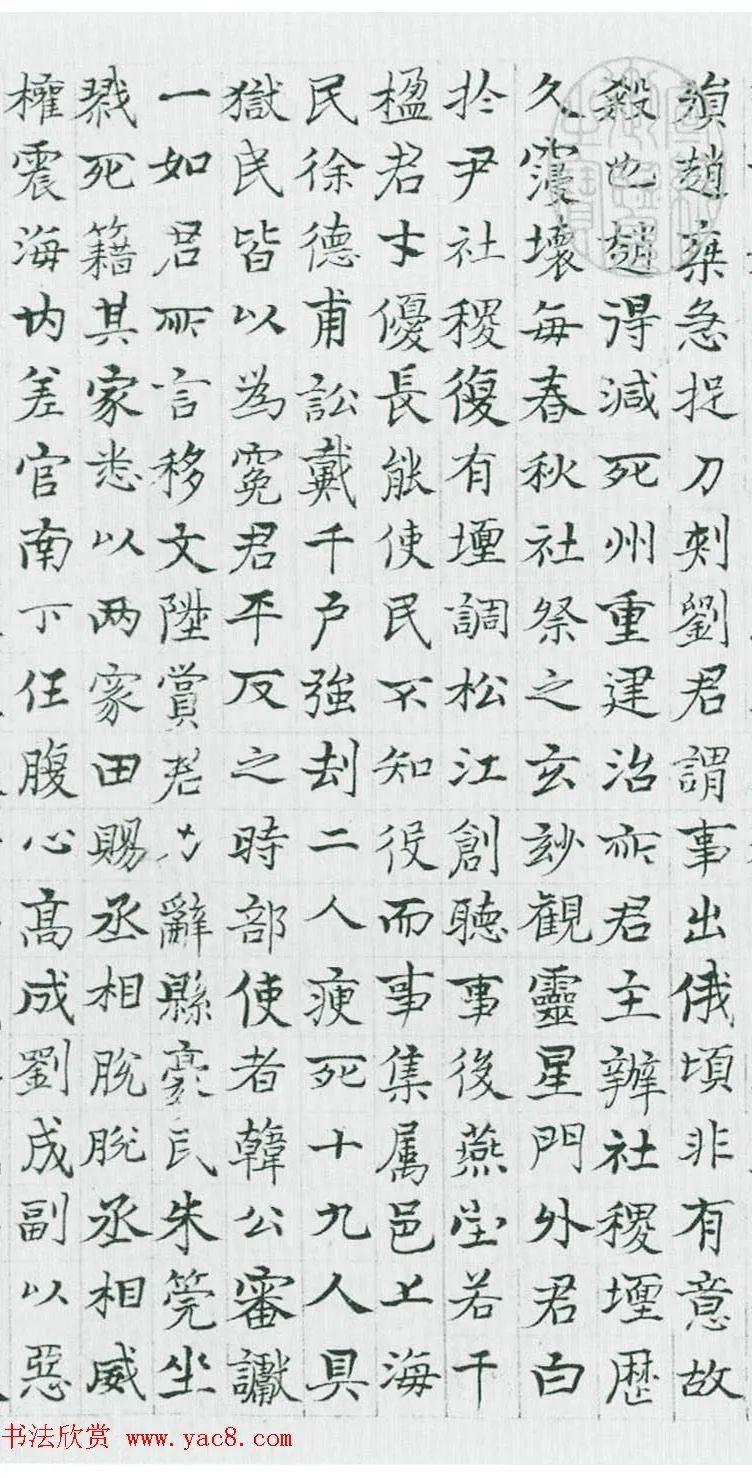 殞趙棄急捉刀刺劉君謂事出俄頃非有意故
殺也趙得減死州重建治所君主辦社稷壇歷
久寖壞每春秋社祭之玄妙觀靈星門外君白
於尹社稷復有壇調松江創聽事後燕堂若干
楹君才優長能使民不知役而事集属邑上海
民徐德甫訟戴千户強刦二人瘐死十九人具
獄民皆以為寃君平反之時部使者韓公審讞
一如君所言移文陞賞君力辭縣豪民朱筦坐
戮死籍其家悉以两家田賜丞相脫脫丞相威
權震海内差官南下任腹心髙成劉成副以惡
书法欣赏 www.yac8.com